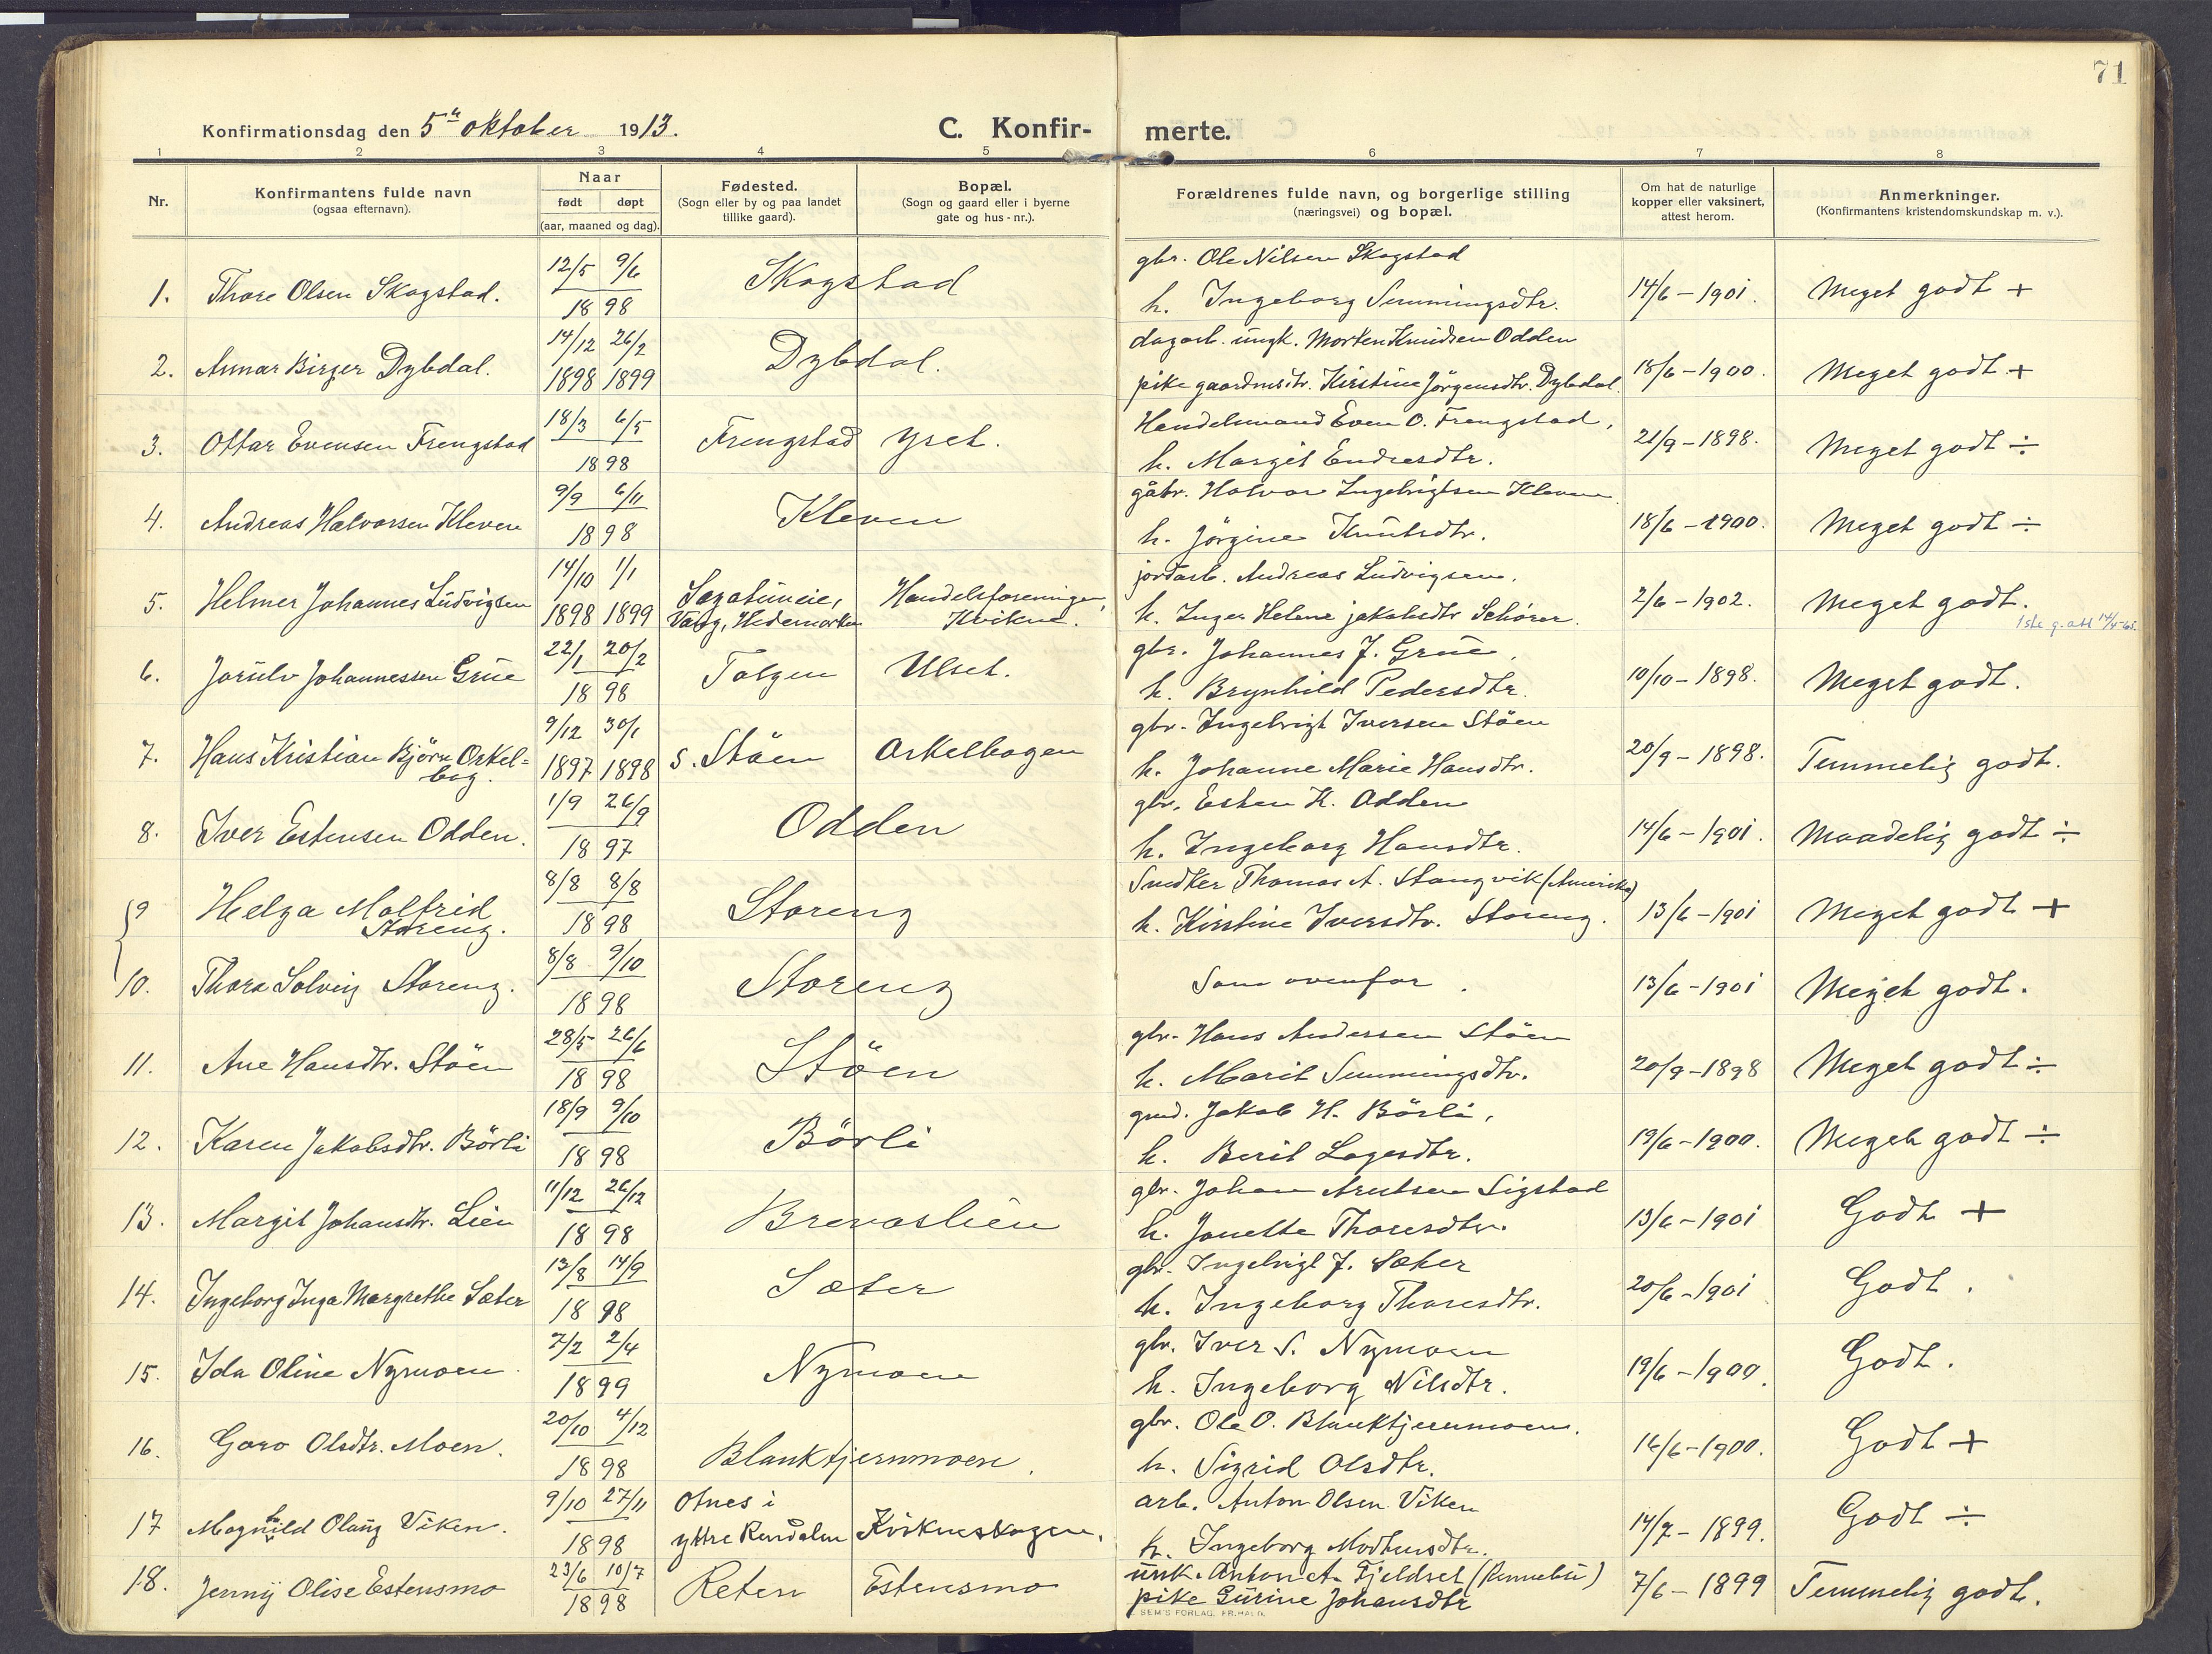 71
Konfirmationsdag den 5te oktober 1913. C. Konfir- merte.
1 2 3 4 5 6 7 8
Nr. Konfirmantens fulde navn (ogsaa efternavn). Naar født døpt (aar, maaned og dag). Fødested. (Sogn eller by og paa landet tillike gaard). Bopæl. (Sogn og gaard eller i byerne gate og hus-nr.). Forældrenes fulde navn, og borgerlige stilling (næringsvei) og bopæl. Om hat de naturlige kopper eller vaksinert, attest herom. Anmerkninger. (Konfirmantens kristendomskundskap m. v.).
12/5 9/6 gbr. Ole Nilsen Skogstad
1. Thore Olsen Skogstad. 1898 Skogstad h. Ingeborg Simmingsdtr. 14/6-1901. Meget godt +
14/12 26/2 dagarb. ungk. Morten Knudsen Odden
2. Annar Birger Dybdal. 1898 1899 Dybdal. pike gaardmsdtr. Kirstine Jörgensdtr. Dybdal 18/6-1900. Meget godt +
18/3 6/5 Handelsmand Even O. Frengstad,
3. Ottar Evensen Frengstad 1898 Frengstad Yset. h. Margit Endresdtr. 21/9-1898. Meget godt ÷
9/9 6/11 gåbr. Halvor Ingebrigtsen Kleven
4. Andreas Halvorsen Kleven 1898 Kleven h. Jörgine Knutsdtr. 18/6-1900. Meget godt ÷
14/10 1/1 jordarb. Andreas Ludvigsen.
5. Helmer Johannes Ludvigsen 1898 1899 Vang, Hedemarken Handelsforeningen, Kvikne. h. Inger Helene jakobsdtr 2/6-1902. Meget godt.
22/1 20/2 gbr. Johannes J. Grue,
6. Jorulv Johannessen Grue 1898 Tolgen Ulset. h. Brynhild Pedersdtr. 10/10-1898. Meget godt.
9/12 30/1 gbr. Ingebrigt Iversen Stöen
7. Hans Kristian Björn Orkel=bog. 1897 1898 S. Stöen Orkelbogen h. Johanne Marie Hansdtr. 20/9-1898. Temmelig godt.
1/9 26/9 gbr. Esten H. Odden
8. Iver Estensen Odden. 1897 Odden h. Ingeborg Hansdtr. 14/6-1901. Maadelig godt ÷
8/8 8/8 Snedker Thomas A. Stangvik (Amerika)
9 Helga Malfrid Storeng. 1898 Storeng h. Kirstine Iversdtr. Storeng. 13/6-1901 Meget godt +
8/8 9/10
10. Thora Solveig Storeng. 1898 Storeng Som ovenfor. 13/6-1901 Meget godt.
28/5 26/6 gbr. Hans Andersen Stöen
11. Ane Hansdtr. Stöen 1898 Stöen h. Marit Simmingsdtr. 20/9-1898 Meget godt ÷
18/9 9/10 gmd. Jakob H. Börli,
12. Karen Jakobsdtr. Börli 1898 Börli h. Berit Lagesdtr. 19/6-1900. Meget godt ÷
11/12 26/12 gbr. Johan Arntsen Sigstad
13. Margit Johansdtr. Lien 1898 Brevaslien h. Jonette Thoresdtr. 13/6-1901 Godt +
13/8 14/9 gbr. Ingebrigt J. Sæter
14. Ingeborg Inga Margrethe Sæter 1898 Sæter h. Ingeborg Thoresdtr. 20/6-1901 Godt.
7/2 2/4 gbr. Iver S. Nymoen
15. Ida Oline Nymoen 1899 Nymoen h. Ingeborg Nilsdtr. 19/6-1900. Godt.
20/10 4/12 gbr. Ole O. Blanktjernmoen.
16. Goro Olsdtr. Moen. 1898 Blanktjernmoen. h. Sigrid Olsdtr. 16/6-1900. Godt +
9/10 27/11 Otnes i arb. Anton Olsen Viken
17 Magnhild Olaug Viken. 1898 yttre Rendalen Kvikneskogen. h. Ingeborg 14/7-1899. Godt ÷
23/6 10/7 unk. Anton A. Fjeldset (Rennebu)
18. Jenny Olise Estensmo 1898 Reten Estensmo pike Gurine Johansdtr 7/6-1899 Temmelig godt.
SEM'S FORLAG, FR.HALD.